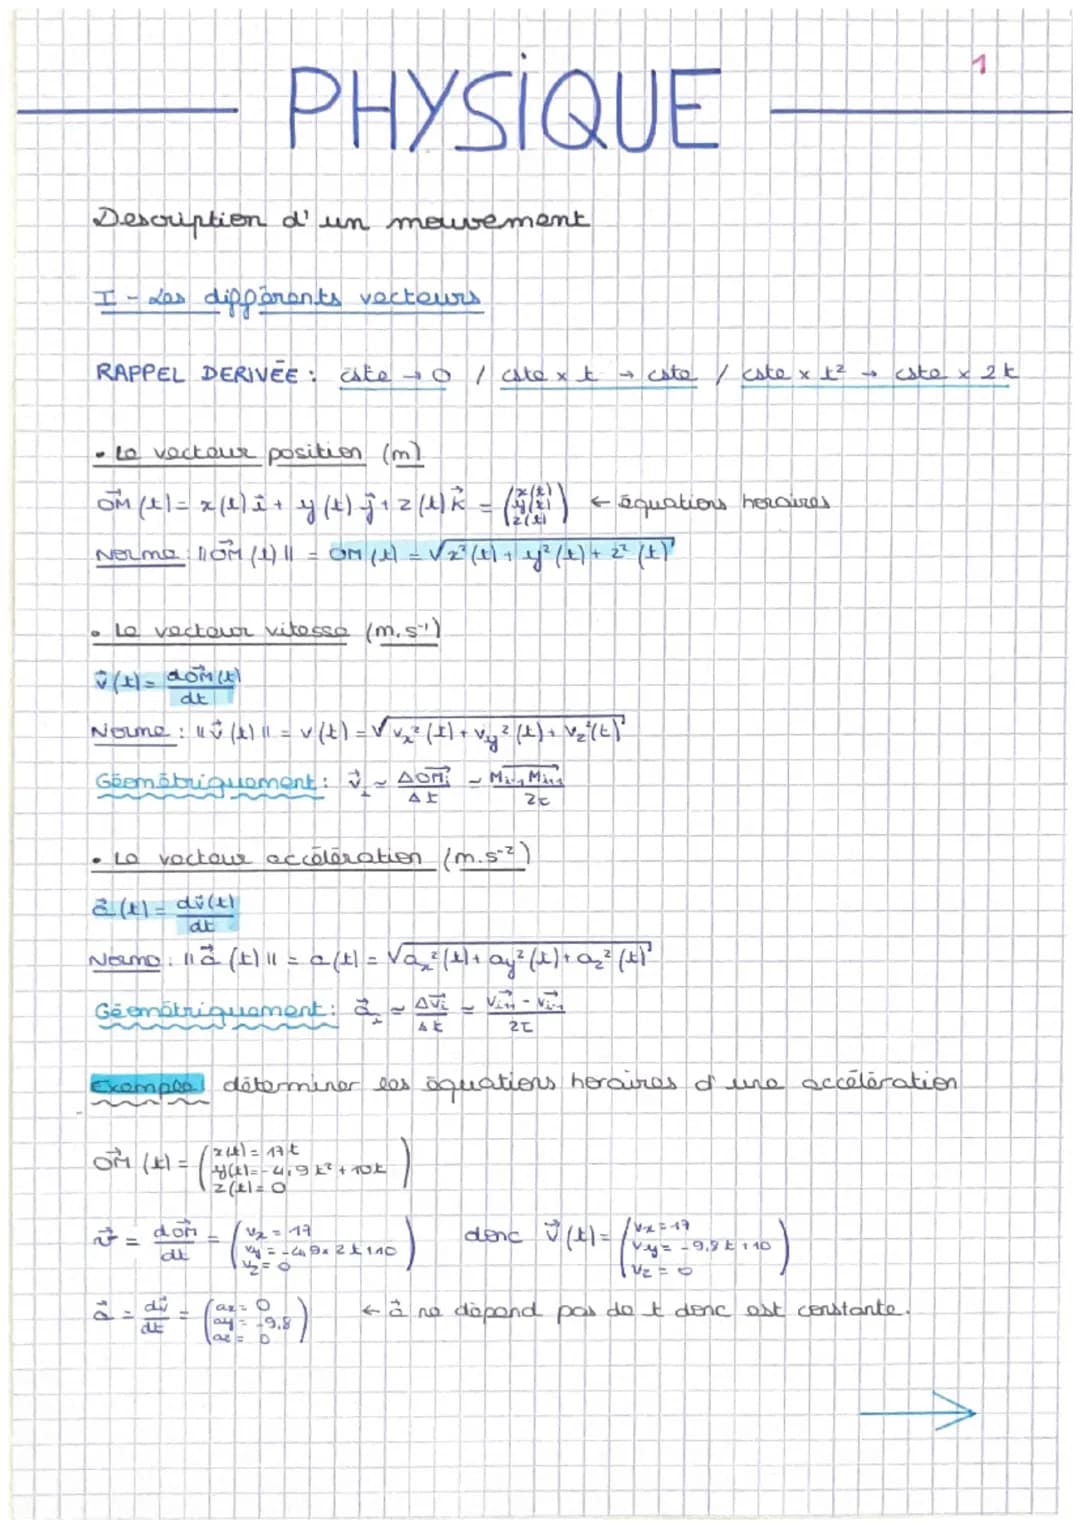 1
PHYSIQUE
Description d'un mouvement
I - Les différents vecteurs
RAPPEL DERIVÉE : cste → 0 / cste x t → cste / cste x t² → cste x 2t
• Le vecteur position (m)
OM⃗ (t) = x(t) i⃗ + y(t) j⃗ + z(t) k⃗ = (x(t) y(t) z(t)) ← équations horaires
Norme : ||OM⃗ (t)|| = OM (t) = √x²(t) + y²(t) + z²(t)
• Le vecteur vitesse (m.s⁻¹)
v⃗ (t) = dOM⃗(t)/dt
Norme : ||v⃗ (t)|| = v(t) = √vx²(t) + vy²(t) + vz²(t)
Géométriquement : v⃗i ~ ΔOM⃗i/Δt ~ Mi-1 Mi+1/2τ
• Le vecteur accélération (m.s⁻²)
a⃗ (t) = dv⃗(t)/dt
Norme : ||a⃗ (t)|| = a(t) = √ax²(t) + ay²(t) + az²(t)
Géométriquement : a⃗i ~ ΔV⃗i/Δt ~ V⃗i+1 - V⃗i-1/2τ
Exemple déterminer les équations horaires d'une accélération
OM⃗ (t) = (x(t) = 17t
y(t) = -4,9 t² + 10t
z(t) = 0)
v⃗ = dOM⃗/dt = (vx = 17
vy = -4,9 x 2t + 10
vz = 0) donc v⃗ (t) = (vx = 17
vy = -9,8t + 10
vz = 0)
a⃗ = dv⃗/dt = (ax = 0
ay = -9,8
az = 0) ← a⃗ ne dépend pas de t donc est constante.